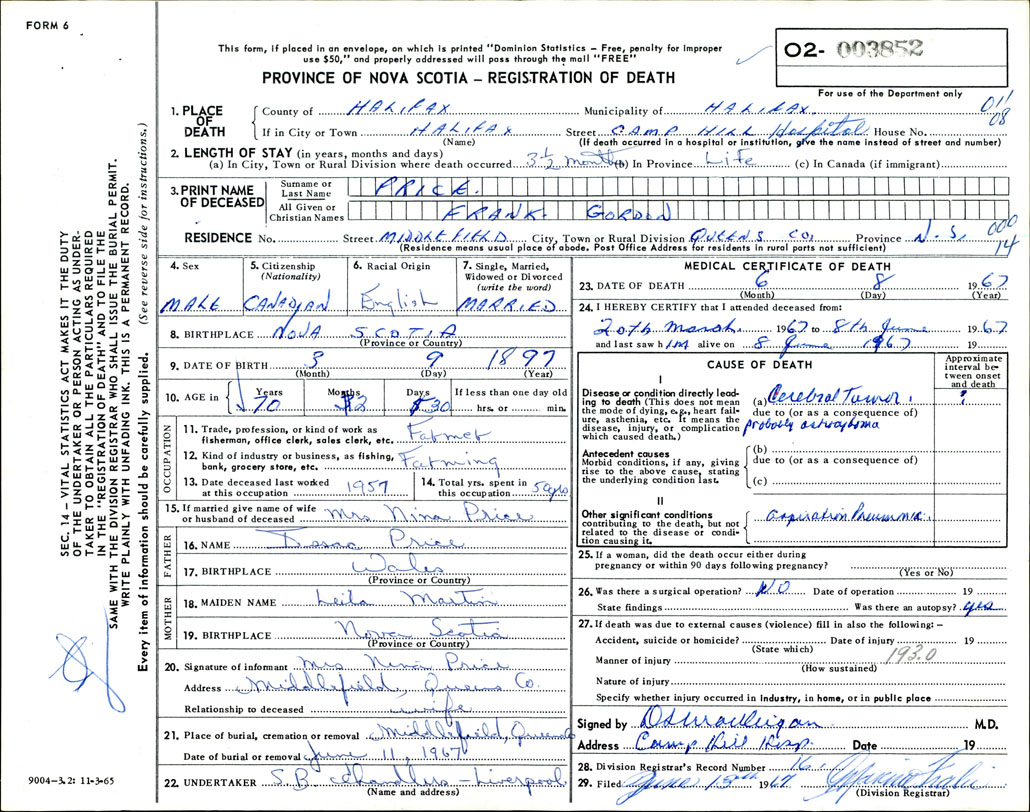 FORM 6
This form, if placed in an envelope, on which is printed "Dominion Statistics – Free, penalty for improper
use $50," and properly addressed will pass through the mail "FREE"
02- 003852
PROVINCE OF NOVA SCOTIA – REGISTRATION OF DEATH
For use of the Department only
011
08
1. PLACE OF DEATH
County of HALIFAX Municipality of HALIFAX
If in City or Town HALIFAX Street CAMP HILL Hospital House No.
(Name) (If death occurred in a hospital or institution, give the name instead of street and number)
2. LENGTH OF STAY (in years, months and days)
(a) In City, Town or Rural Division where death occurred 3½ months (b) In Province Life (c) In Canada (if immigrant)
3. PRINT NAME OF DECEASED
Surname or Last Name PRICE.
All Given or Christian Names FRANK GORDON
RESIDENCE No. Street MIDDLEFIELD City, Town or Rural Division QUEENS CO, Province N.S.
000
14
(Residence means usual place of abode. Post Office Address for residents in rural parts not sufficient)
4. Sex MALE
5. Citizenship (Nationality) CANADIAN
6. Racial Origin English
7. Single, Married, Widowed or Divorced (write the word) MARRIED
8. BIRTHPLACE NOVA SCOTIA
(Province or Country)
9. DATE OF BIRTH 3 9 1897
(Month) (Day) (Year)
10. AGE in Years Months Days If less than one day old
70 2 30 hrs. or min.
OCCUPATION
11. Trade, profession, or kind of work as
fisherman, office clerk, sales clerk, etc. Farmer
12. Kind of industry or business, as fishing,
bank, grocery store, etc. Farming
13. Date deceased last worked at this occupation 1957
14. Total yrs. spent in this occupation 50 yrs
15. If married give name of wife
or husband of deceased Mrs Nina Price
FATHER
16. NAME Isaac Price
17. BIRTHPLACE Wales
(Province or Country)
MOTHER
18. MAIDEN NAME Leila Martin
19. BIRTHPLACE Nova Scotia
(Province or Country)
20. Signature of informant Mrs Nina Price
Address Middlefield, Queens Co.
Relationship to deceased wife
21. Place of burial, cremation or removal Middlefield, Queens
Date of burial or removal June 11, 1967
22. UNDERTAKER S.B. Chandlers – Liverpool
(Name and address)
MEDICAL CERTIFICATE OF DEATH
23. DATE OF DEATH 6 8 1967
(Month) (Day) (Year)
24. I HEREBY CERTIFY that I attended deceased from:
20th March 1967 to 8th June 1967
and last saw him alive on 8 June 1967 19
CAUSE OF DEATH
Approximate interval between onset and death
I
Disease or condition directly leading
to death (This does not mean
the mode of dying, e.g., heart failure,
asthenia, etc. It means the
disease, injury, or complication
which caused death.)
(a) Cerebral Tumor, ?
due to (or as a consequence of)
probably astrocytoma
Antecedent causes
Morbid conditions, if any, giving
rise to the above cause, stating
the underlying condition last.
(b)
due to (or as a consequence of)
(c)
II
Other significant conditions
contributing to the death, but not
related to the disease or condition
causing it.
aspiration Pneumonia.
25. If a woman, did the death occur either during
pregnancy or within 90 days following pregnancy?
(Yes or No)
26. Was there a surgical operation? NO Date of operation 19
State findings Was there an autopsy? yes
27. If death was due to external causes (violence) fill in also the following: –
Accident, suicide or homicide? Date of injury 19
(State which) 193.0
Manner of injury
(How sustained)
Nature of injury
Specify whether injury occurred in industry, in home, or in public place
Signed by M.D.
Address Camp Hill Hosp. Date 19
28. Division Registrar's Record Number
29. Filed June 15th 1967
(Division Registrar)
SEC. 14 – VITAL STATISTICS ACT MAKES IT THE DUTY
OF THE UNDERTAKER OR PERSON ACTING AS UNDER-
TAKER TO OBTAIN ALL THE PARTICULARS REQUIRED
IN THE "REGISTRATION OF DEATH" AND TO FILE THE
SAME WITH THE DIVISION REGISTRAR WHO SHALL ISSUE THE BURIAL PERMIT.
WRITE PLAINLY WITH UNFADING INK. THIS IS A PERMANENT RECORD.
Every item of information should be carefully supplied. (See reverse side for instructions.)
9004-3.2: 11-3-65